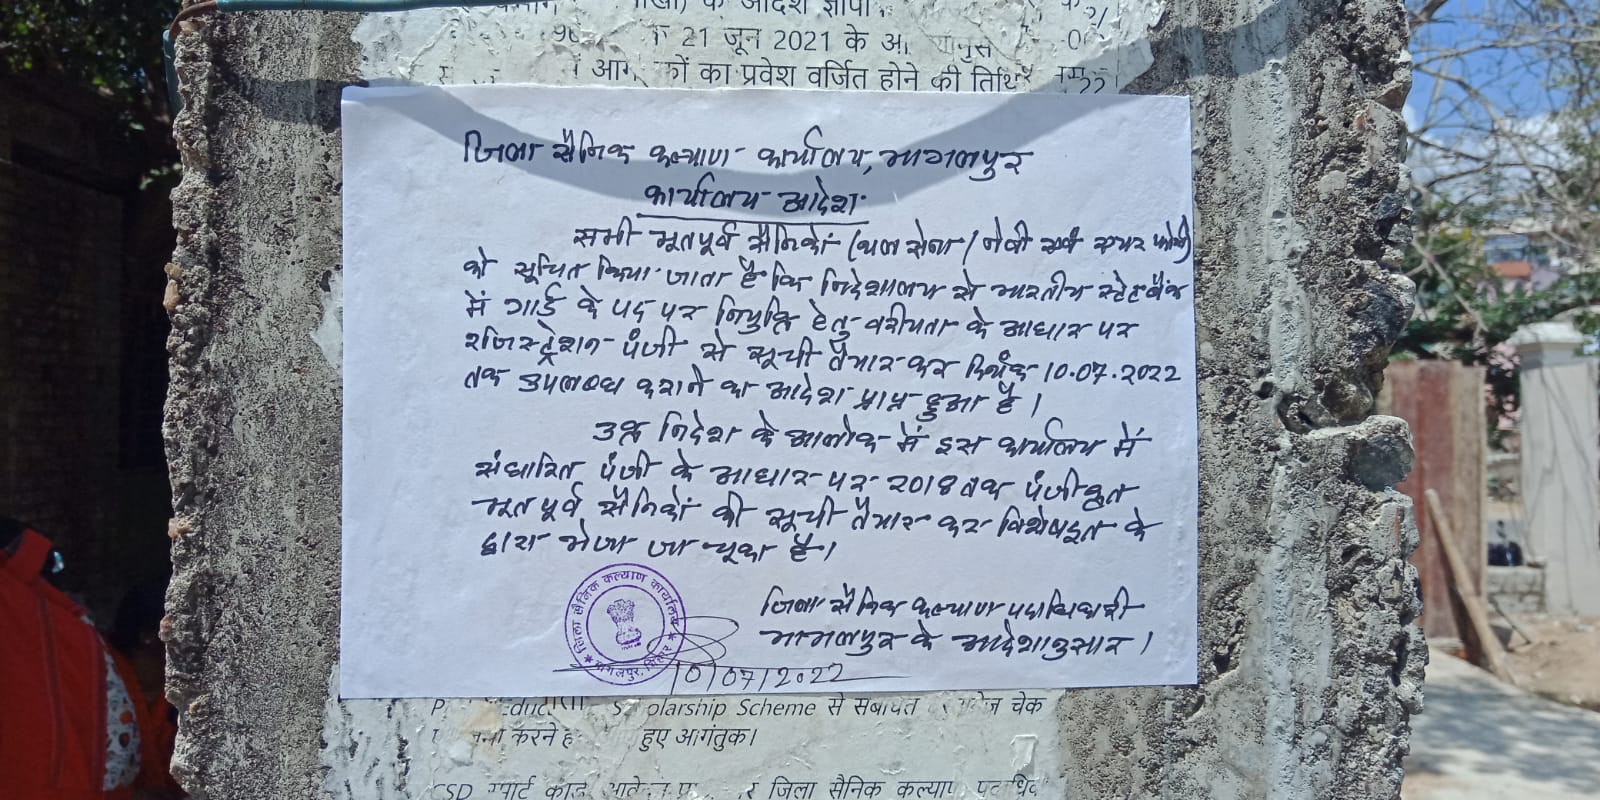 के आदेश
21 जून 2021 के
का प्रवेश वर्जित होने की तिथि
जिला सैनिक कल्याण कार्यालय, भागलपुर
कार्यालय आदेश
सभी भूतपूर्व सैनिकों (थल सेना / नेवी एवं एयर फोर्स)
को सूचित किया जाता है कि निदेशालय से भारतीय स्टेट बैंक
में गार्ड के पद पर नियुक्ति हेतु वरीयता के आधार पर
रजिस्ट्रेशन पंजी से सूची तैयार कर दिनांक 10.07.2022
तक उपलब्ध कराने का आदेश प्राप्त हुआ है।
उक्त निदेश के आलोक में इस कार्यालय में
संधारित पंजी के आधार पर 2018 तक पंजीकृत
भूतपूर्व सैनिकों की सूची तैयार कर विशेषदूत के
द्वारा भेजा जा चूका है।
जिला सैनिक कल्याण पदाधिकारी
भागलपुर के आदेशानुसार।
जिला सैनिक कल्याण कार्यालय
भागलपुर, बिहार
10/07/2022
Scheme से चेक
करने हुए आगंतुक।
CSD स्मार्ट कार्ड जिला सैनिक कल्याण